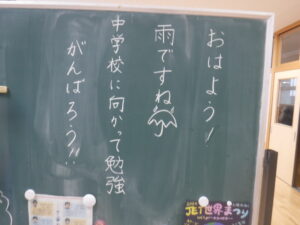 おはよう!
雨ですね
中学校に向かって勉強
がんばろう!!
世界まつり